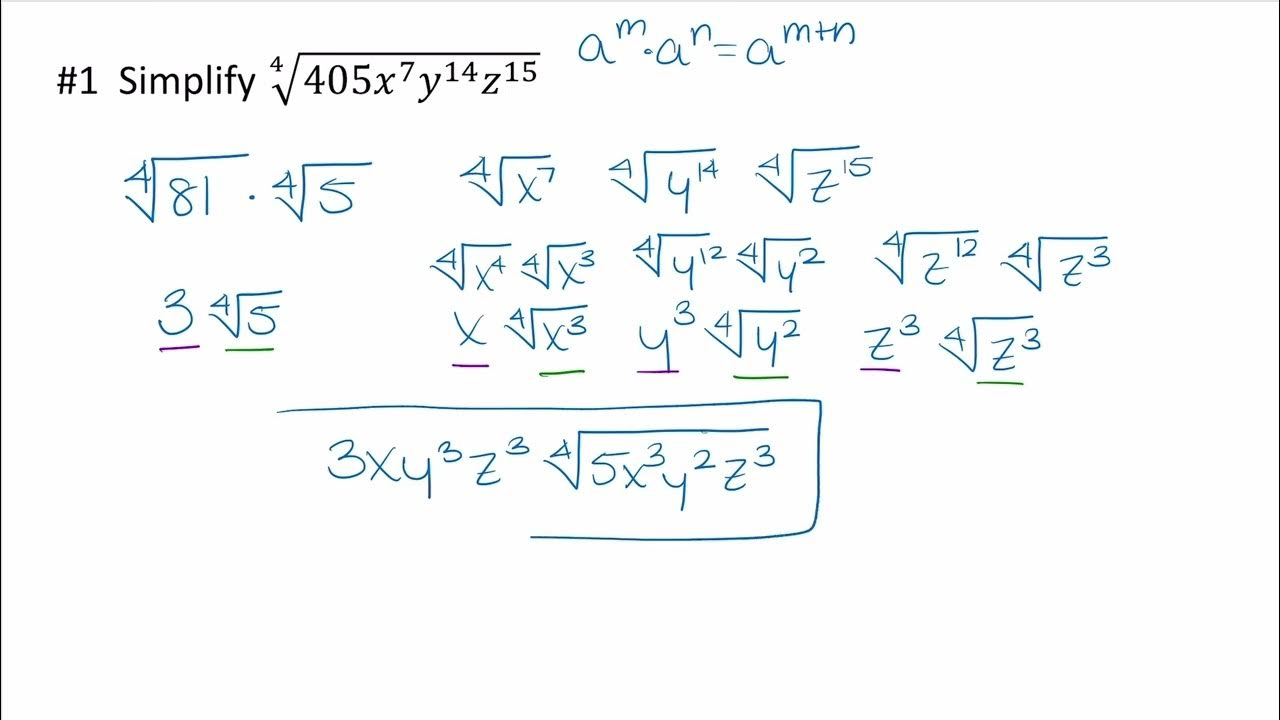 #1 Simplify ∜(405x⁷y¹⁴z¹⁵) aᵐ·aⁿ=aᵐ⁺ⁿ
∜81 · ∜5 ∜x⁷ ∜y¹⁴ ∜z¹⁵
∜x⁴ ∜x³ ∜y¹² ∜y² ∜z¹² ∜z³
3 ∜5 x ∜x³ y³ ∜y² z³ ∜z³
3xy³z³ ∜(5x³y²z³)